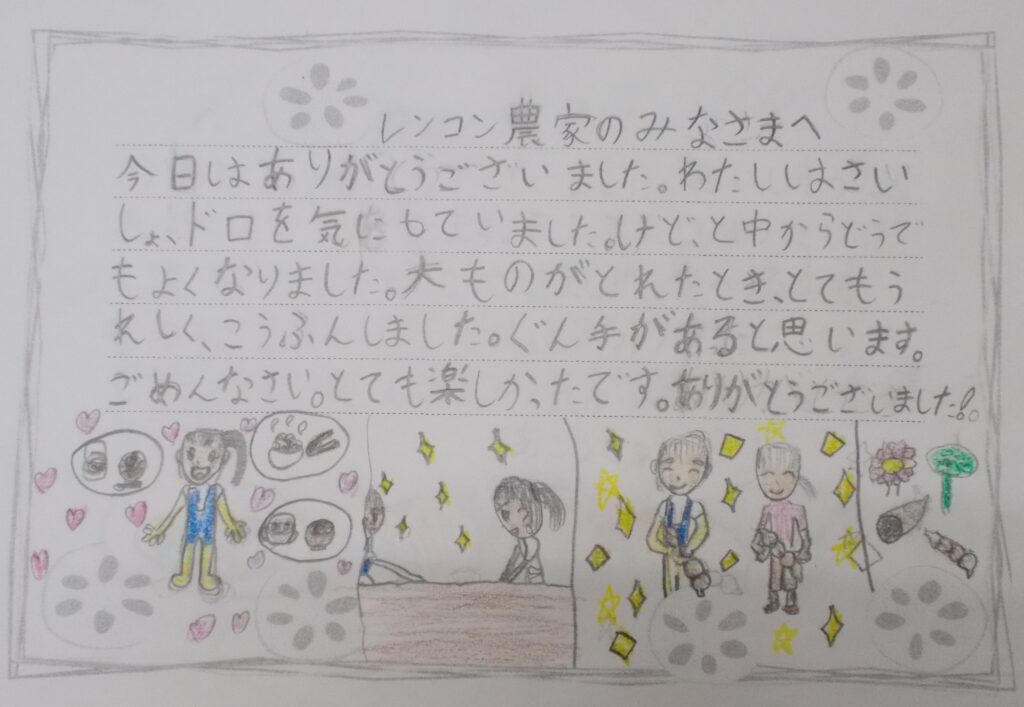 レンコン農家のみなさまへ
今日はありがとうございました。わたしはさい
しょ、ドロを気にもていました。けど、と中からどうで
もよくなりました。大ものがとれたとき、とてもう
れしく、こうふんしました。ぐん手があると思います。
ごめんなさい。とても楽しかったです。ありがとうございました!。